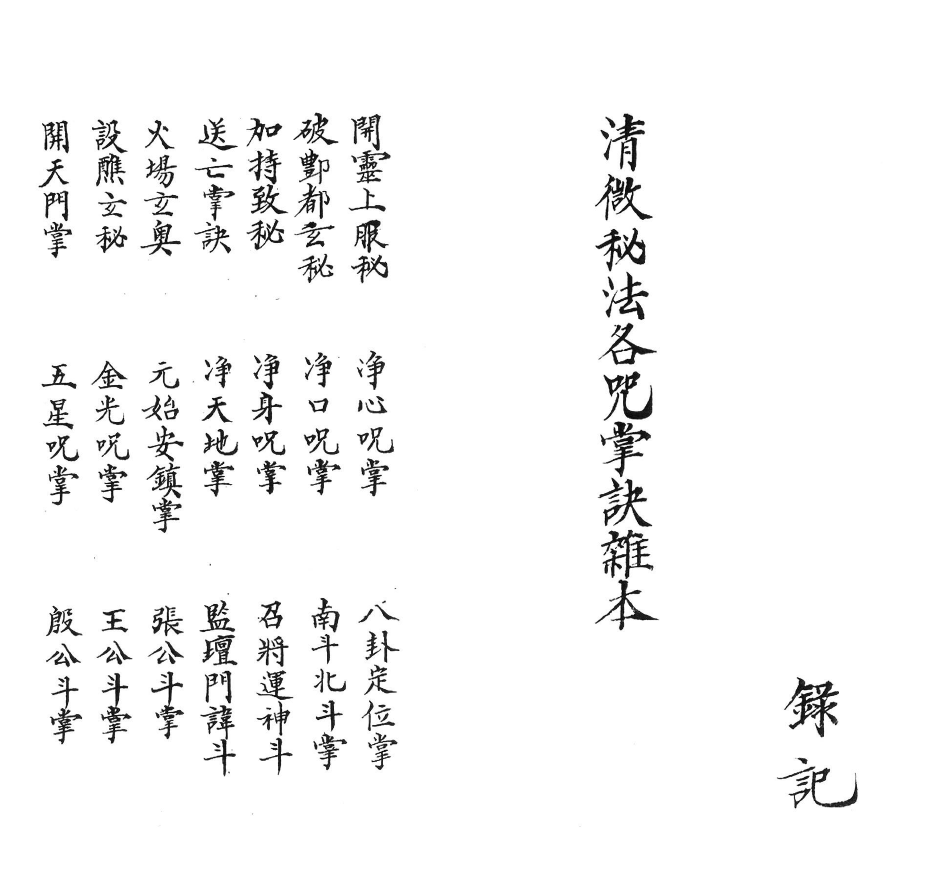 錄記
清微秘法各咒掌訣雜本
開靈上服秘
破酆都玄秘
加持致秘
送亡掌訣
火場玄奧
設醮玄秘
開天門掌
净心呪掌
净口呪掌
净身呪掌
净天地掌
元始安鎮掌
金光呪掌
五星呪掌
八卦定位掌
南斗北斗掌
召將運神斗
監壇門諱斗
張公斗掌
王公斗掌
殷公斗掌